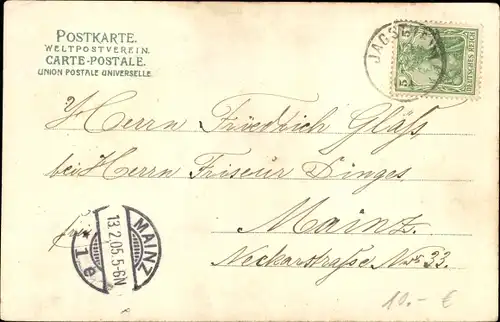 POSTKARTE.
WELTPOSTVEREIN.
CARTE-POSTALE.
UNION POSTALE UNIVERSELLE.
DEUTSCHES REICH
5
Herrn Friedrich Gläss
bei Herrn Friseur Dinges
Mainz.
Neckarstraße No 33.
MAINZ
13.2.05.5-6N
1e
10.- €